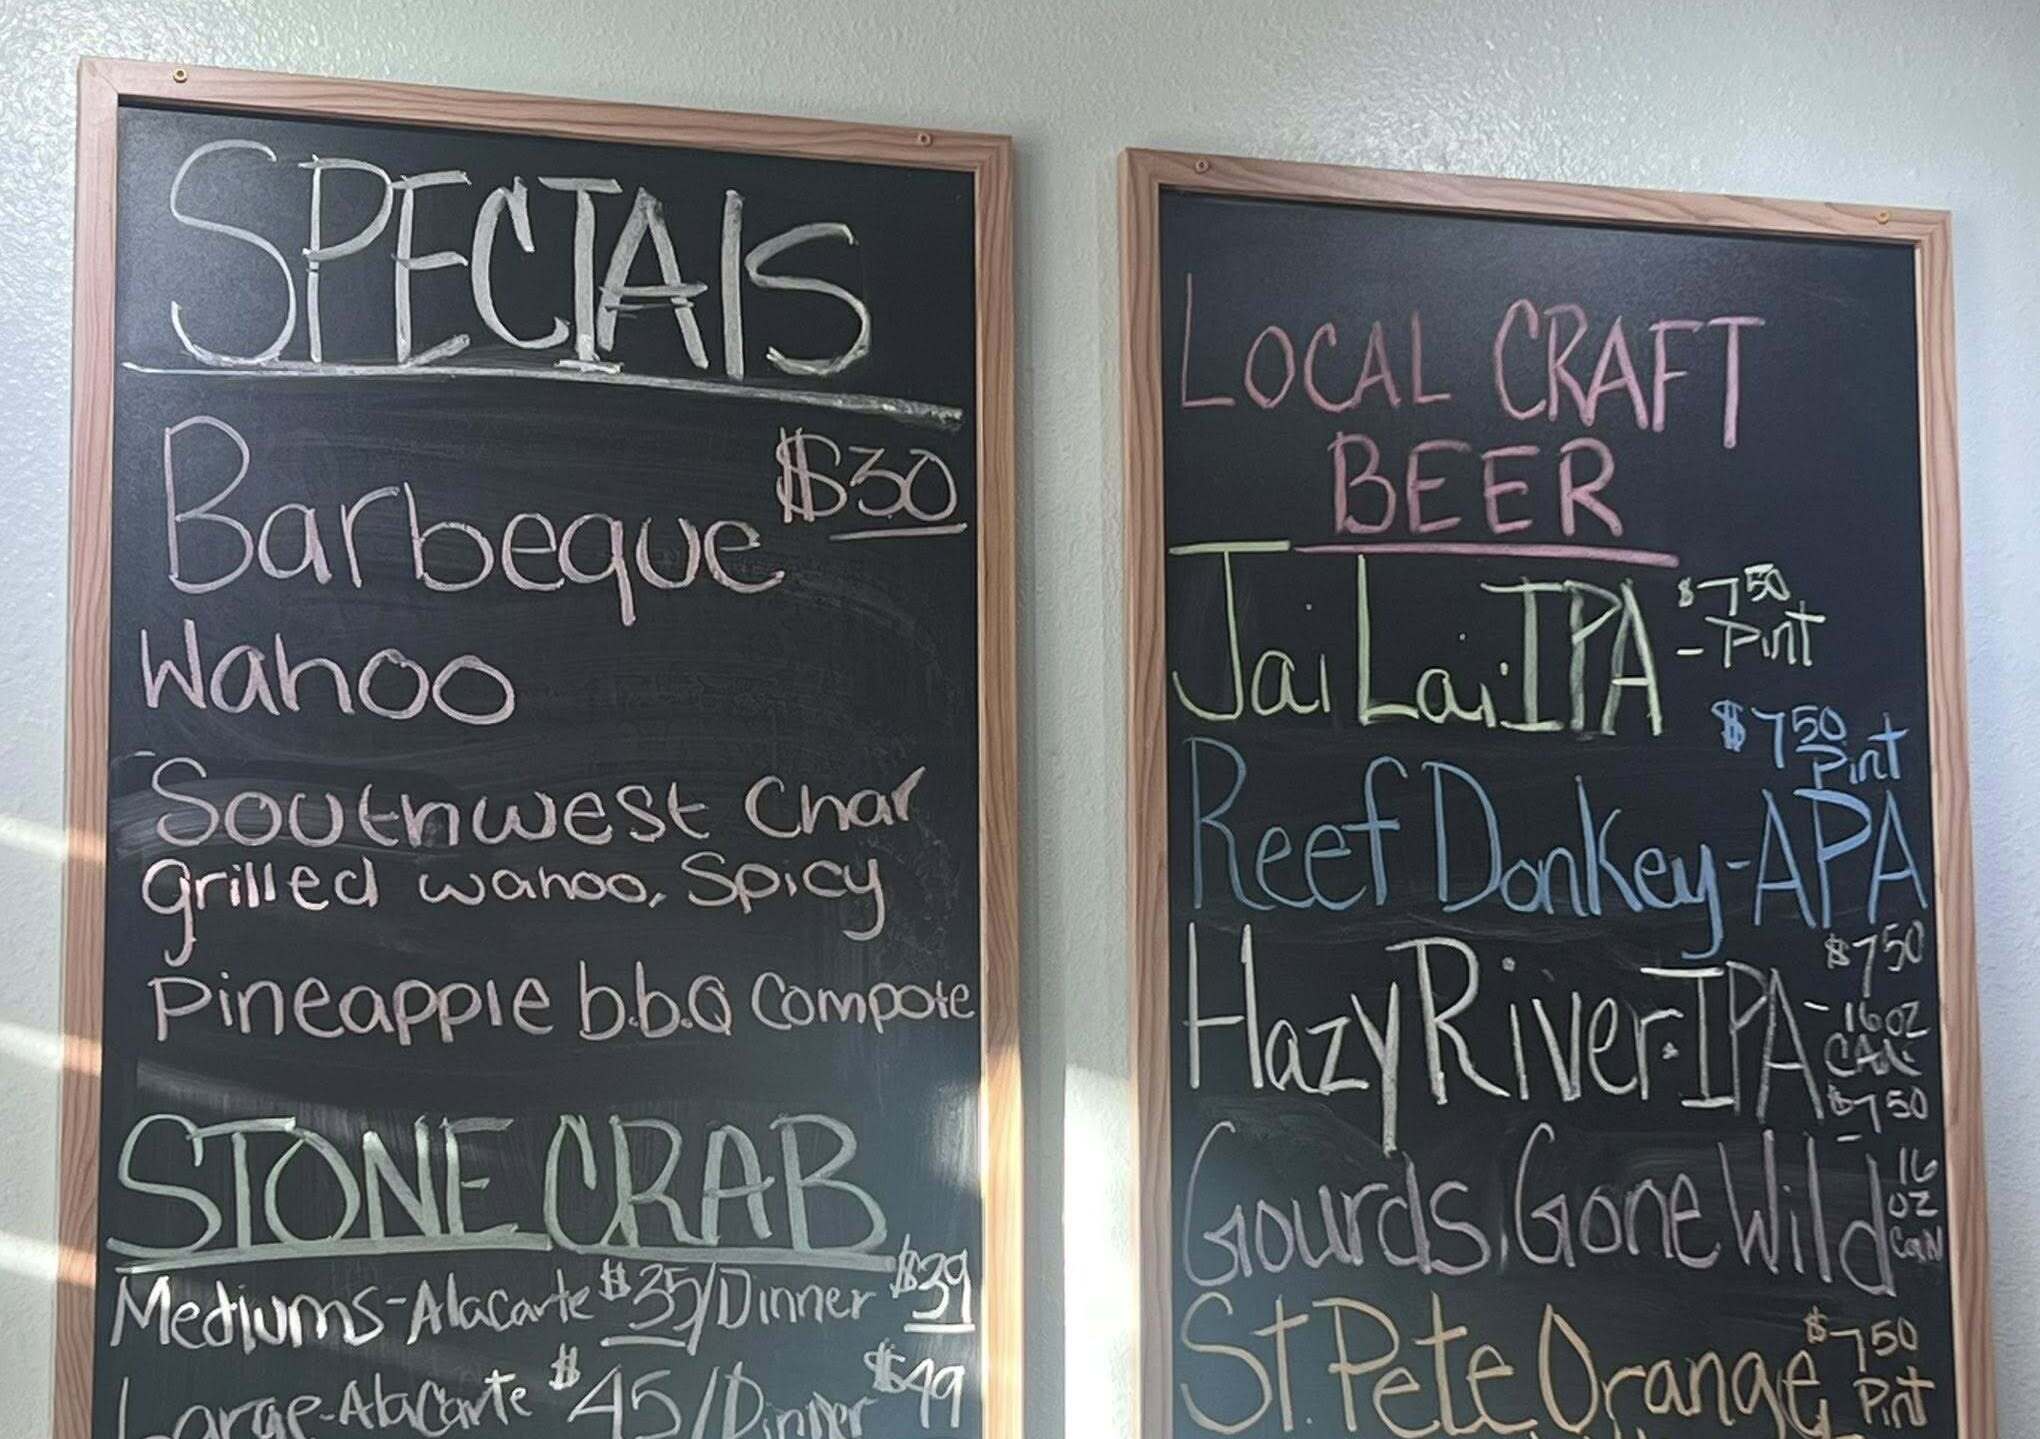 SPECIAlS
Barbeque $30
Wahoo
Southwest Char
grilled wahoo, Spicy
pineapple b.b.Q Compote
STONE CRAB
Mediums-Alacarte $35/Dinner $39
Large-AlaCarte $45/Dinner $49
LOCAL CRAFT
BEER
Jai Lai. IPA $7 50
- Pint
$7 50
Pint
Reef Donkey-APA
Hazy River. IPA- $7 50
16 oz
CAN
$7 50
Gourds Gone Wild - 16
OZ
CaN
St. Pete Orange $7 50
Pint